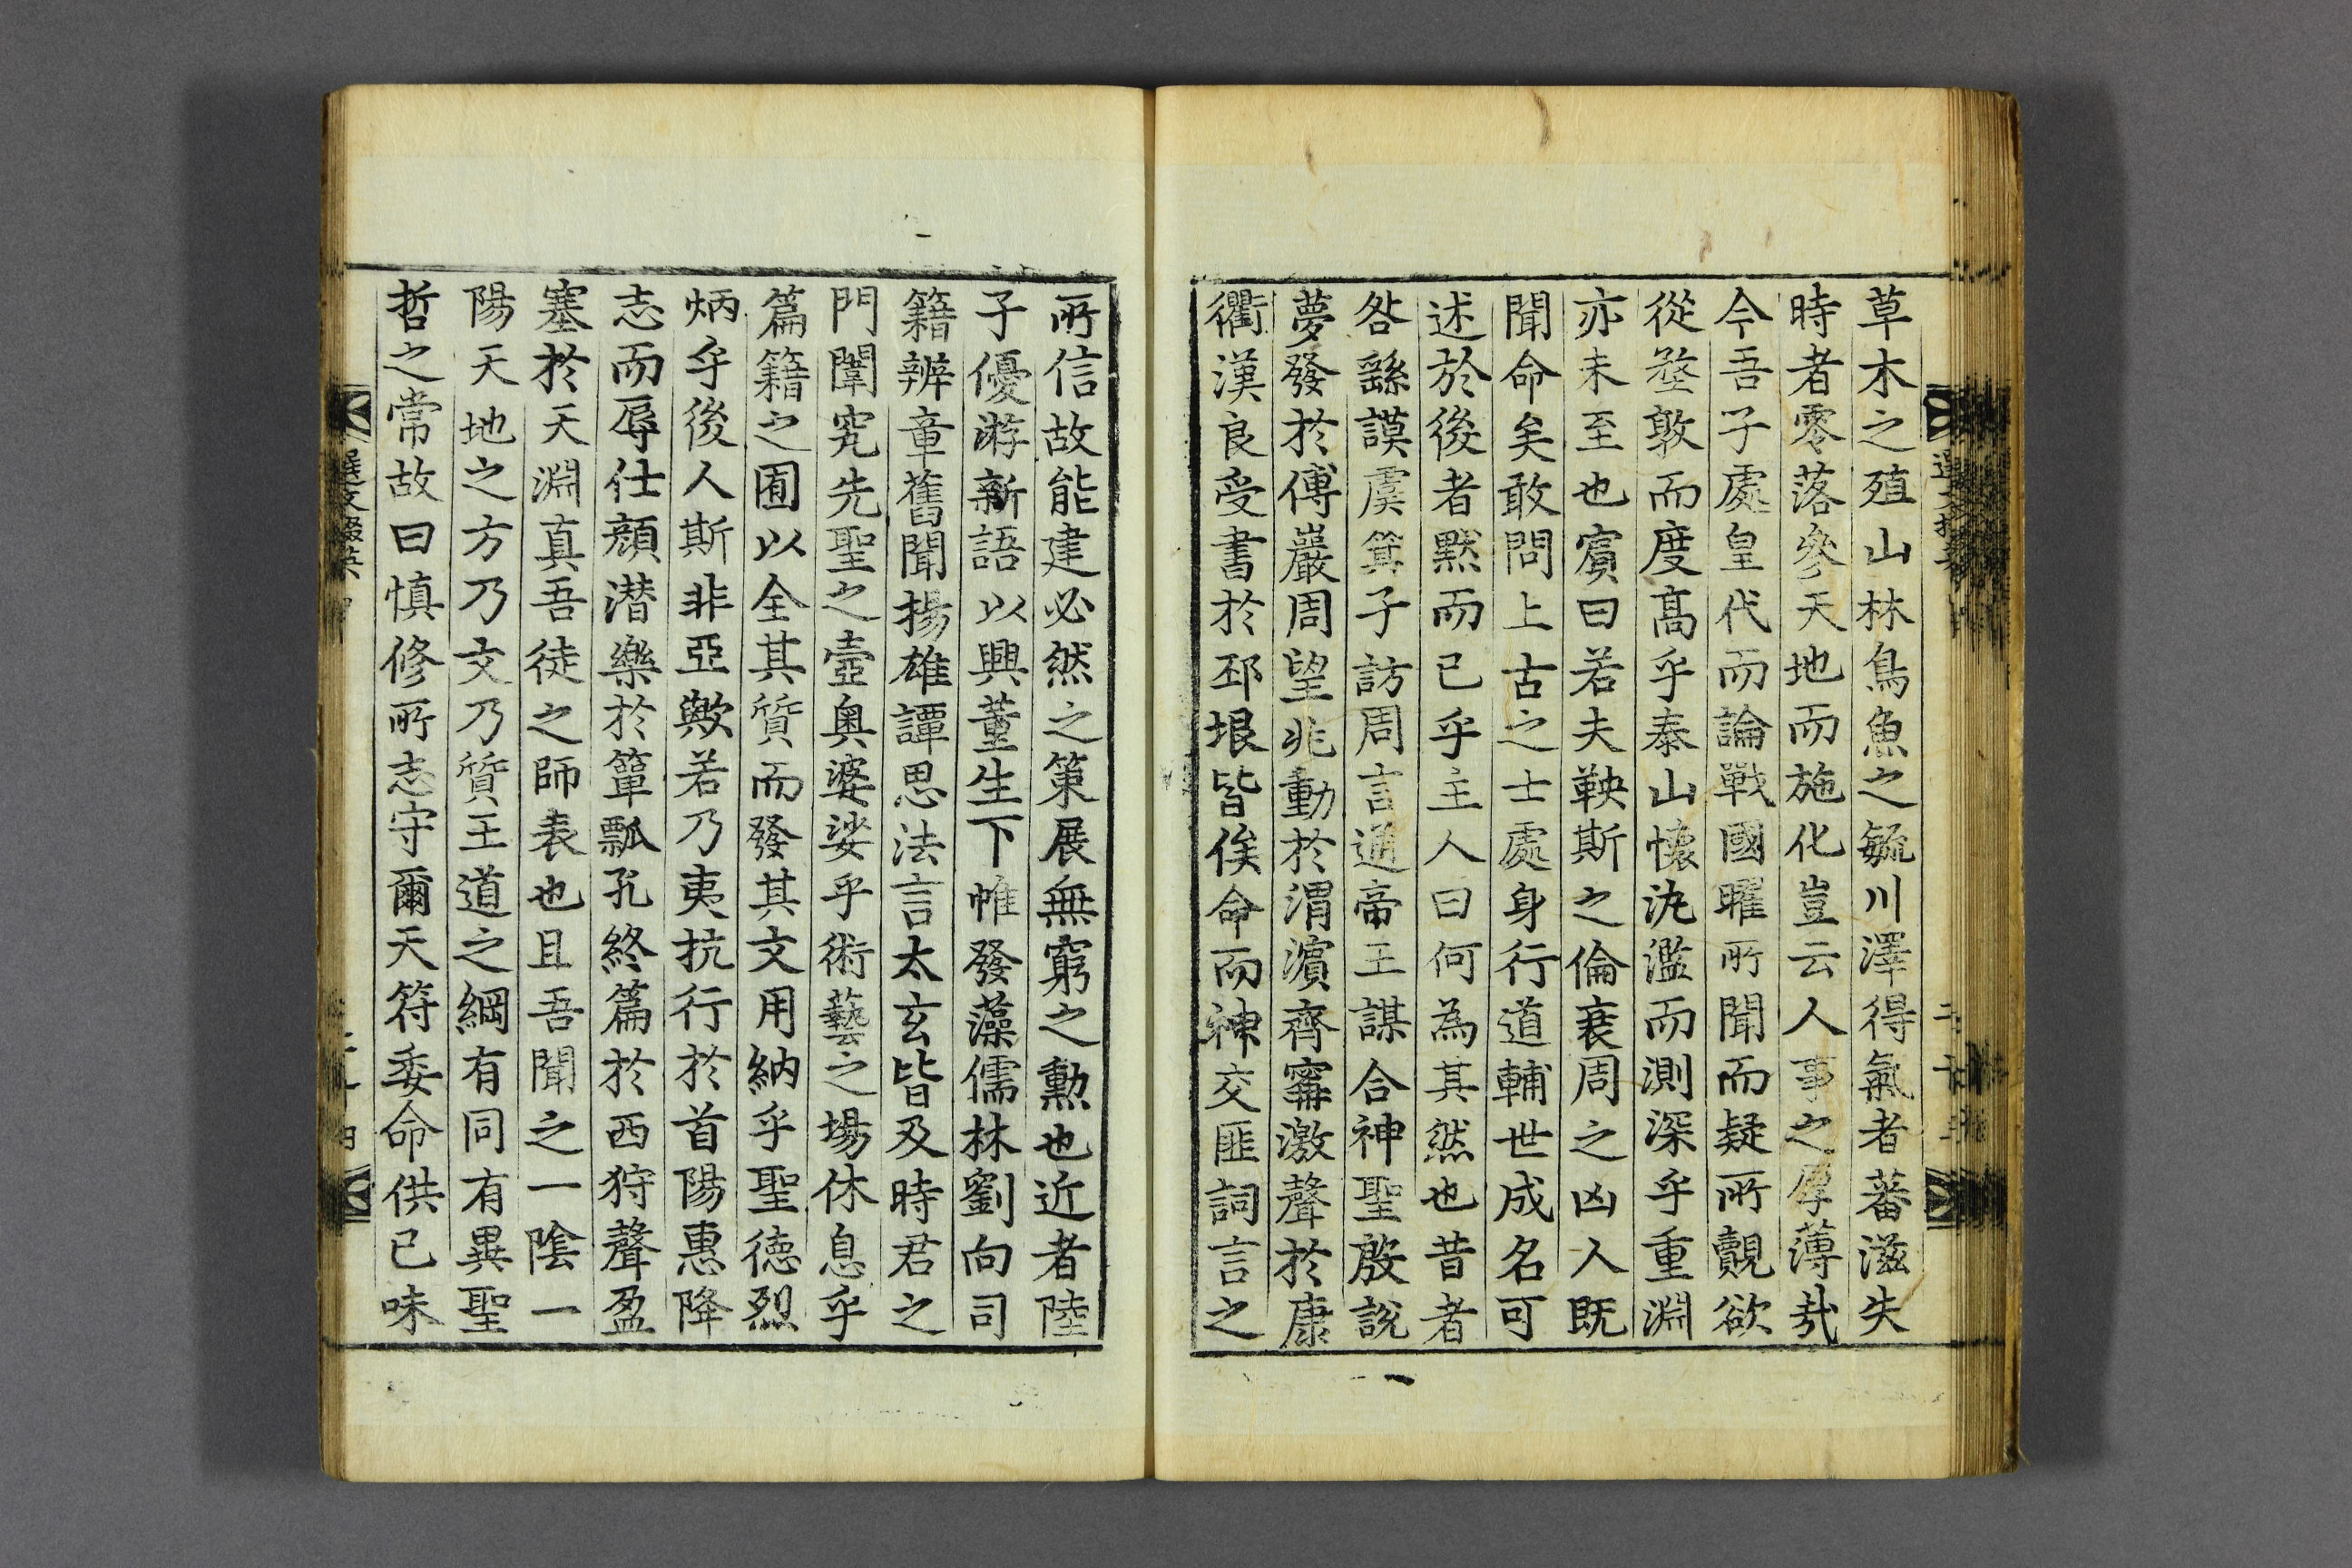 草木之殖山林鳥魚之毓川澤得氣者蕃滋失
時者零落參天地而施化豈云人事之厚薄㢤
今吾子處皇代而論戰國曜所聞而疑所覿欲
從堥敦而度髙乎泰山懷氿濫而測深乎重淵
亦未至也賔曰若夫鞅斯之倫衰周之凶人既
聞命矣敢問上古之士處身行道輔世成名可
述於後者黙而已乎主人曰何為其然也昔者
咎繇謨虞箕子訪周言通帝王謀合神聖殷說
夢發於傅巖周望兆動於渭濵齊寗激聲於康
衢漢良受書於邳垠皆俟命而神交匪詞言之
所信故能建必然之策展無窮之勲也近者陸
子優游新語以興董生下帷發藻儒林劉向司
籍辨章舊聞揚雄譚思法言太玄皆及時君之
門闈究先聖之壼奥婆娑乎術藝之塲休息乎
篇籍之囿以全其質而發其文用納乎聖德烈
炳乎後人斯非亞歟若乃夷抗行於首陽惠降
志而辱仕顔潜樂於簞瓢孔終篇於西狩聲盈
塞於天淵真吾徒之師表也且吾聞之一隂一
陽天地之方乃文乃質王道之綱有同有異聖
哲之常故曰慎修所志守爾天符委命供已味
選文掇英